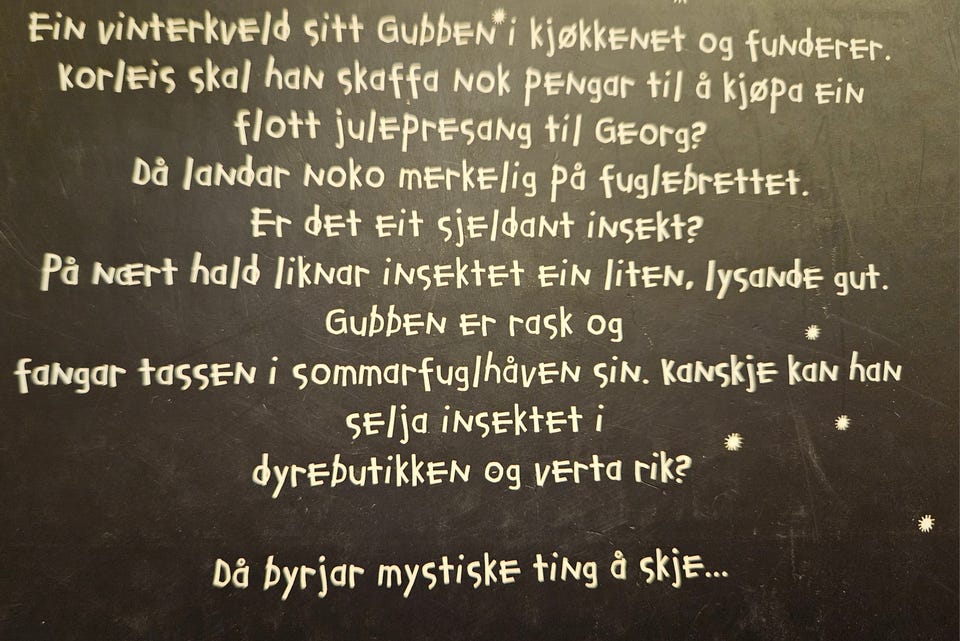 Ein vinterkveld sitt Gubben i kjøkkenet og funderer.
Korleis skal han skaffa nok pengar til å kjøpa ein
flott julepresang til Georg?
Då landar noko merkelig på fuglebrettet.
Er det eit sjeldant insekt?
På nært hald liknar insektet ein liten, lysande gut.
Gubben er rask og
fangar tassen i sommarfuglhåven sin. Kanskje kan han
selja insektet i
dyrebutikken og verta rik?
Då byrjar mystiske ting å skje...